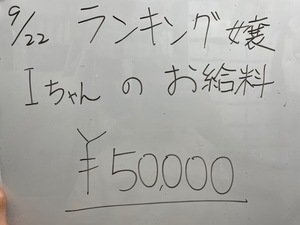 9/22 ランキング嬢
Iちゃんのお給料
¥50,000